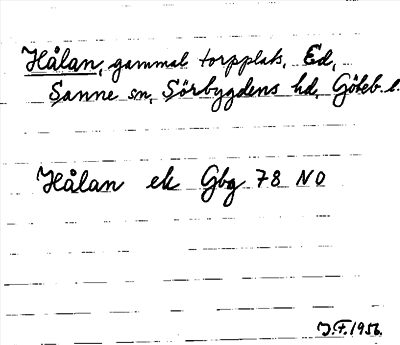 Hålan, gammal torpplats, Ed,
Sanne sn, Sörbygdens hd, Göteb. l.
Hålan ek Gbg 78 NO
J.F. 1956.